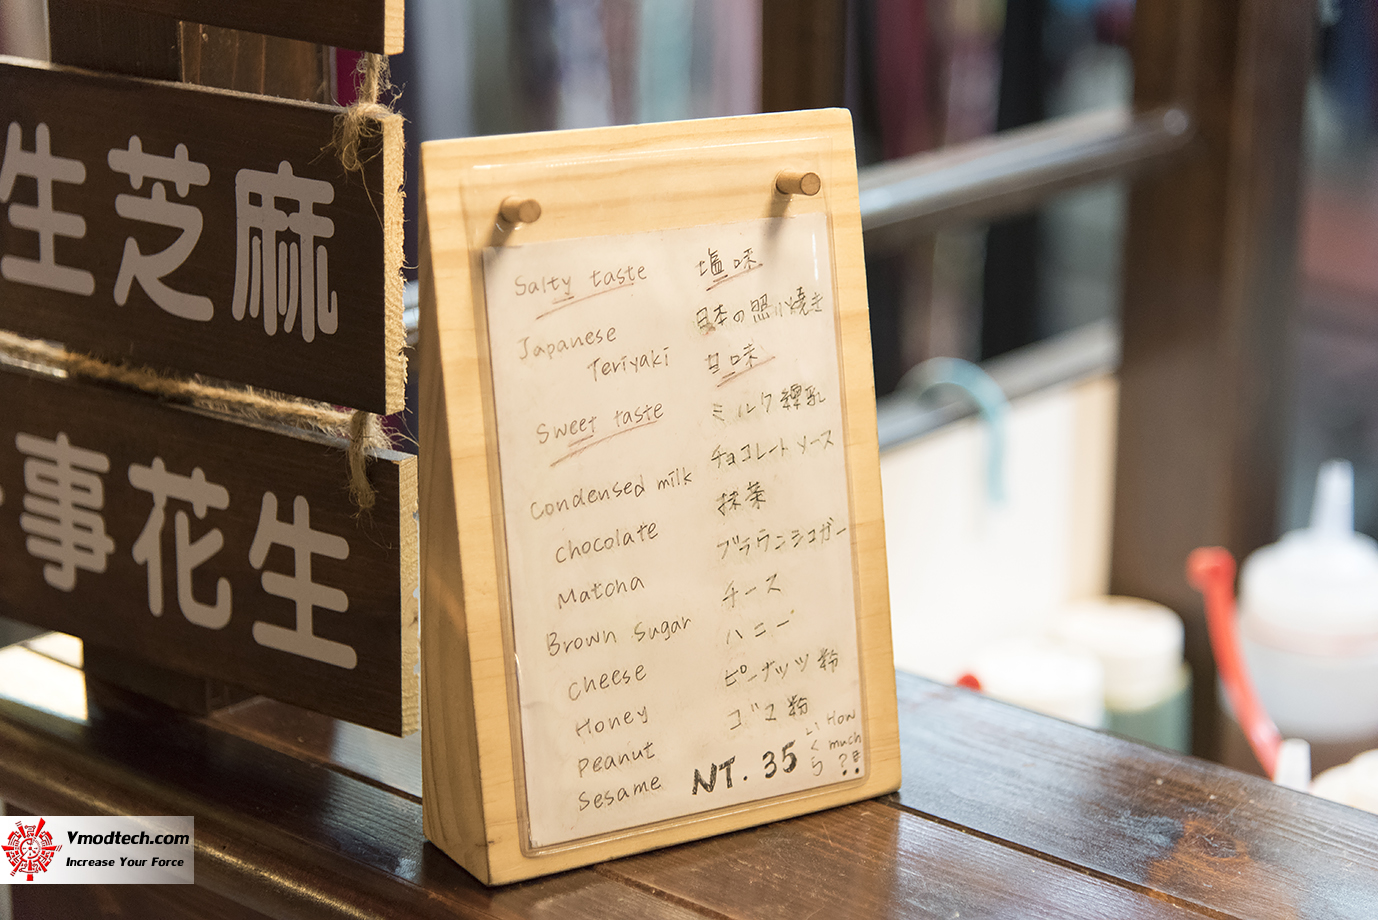 生芝麻
事花生
Salty taste
Japanese
Teriyaki
Sweet taste
Condensed milk
chocolate
Matcha
Brown Sugar
Cheese
Honey
Peanut
Sesame
塩味
日本の照り焼き
甘味
ミルク練乳
チョコレートソース
抹茶
ブラウンシュガー
チーズ
ハニー
ピーナッツ粉
ゴマ粉
NT. 35
いくら
How
much
?
Vmodtech.com
Increase Your Force